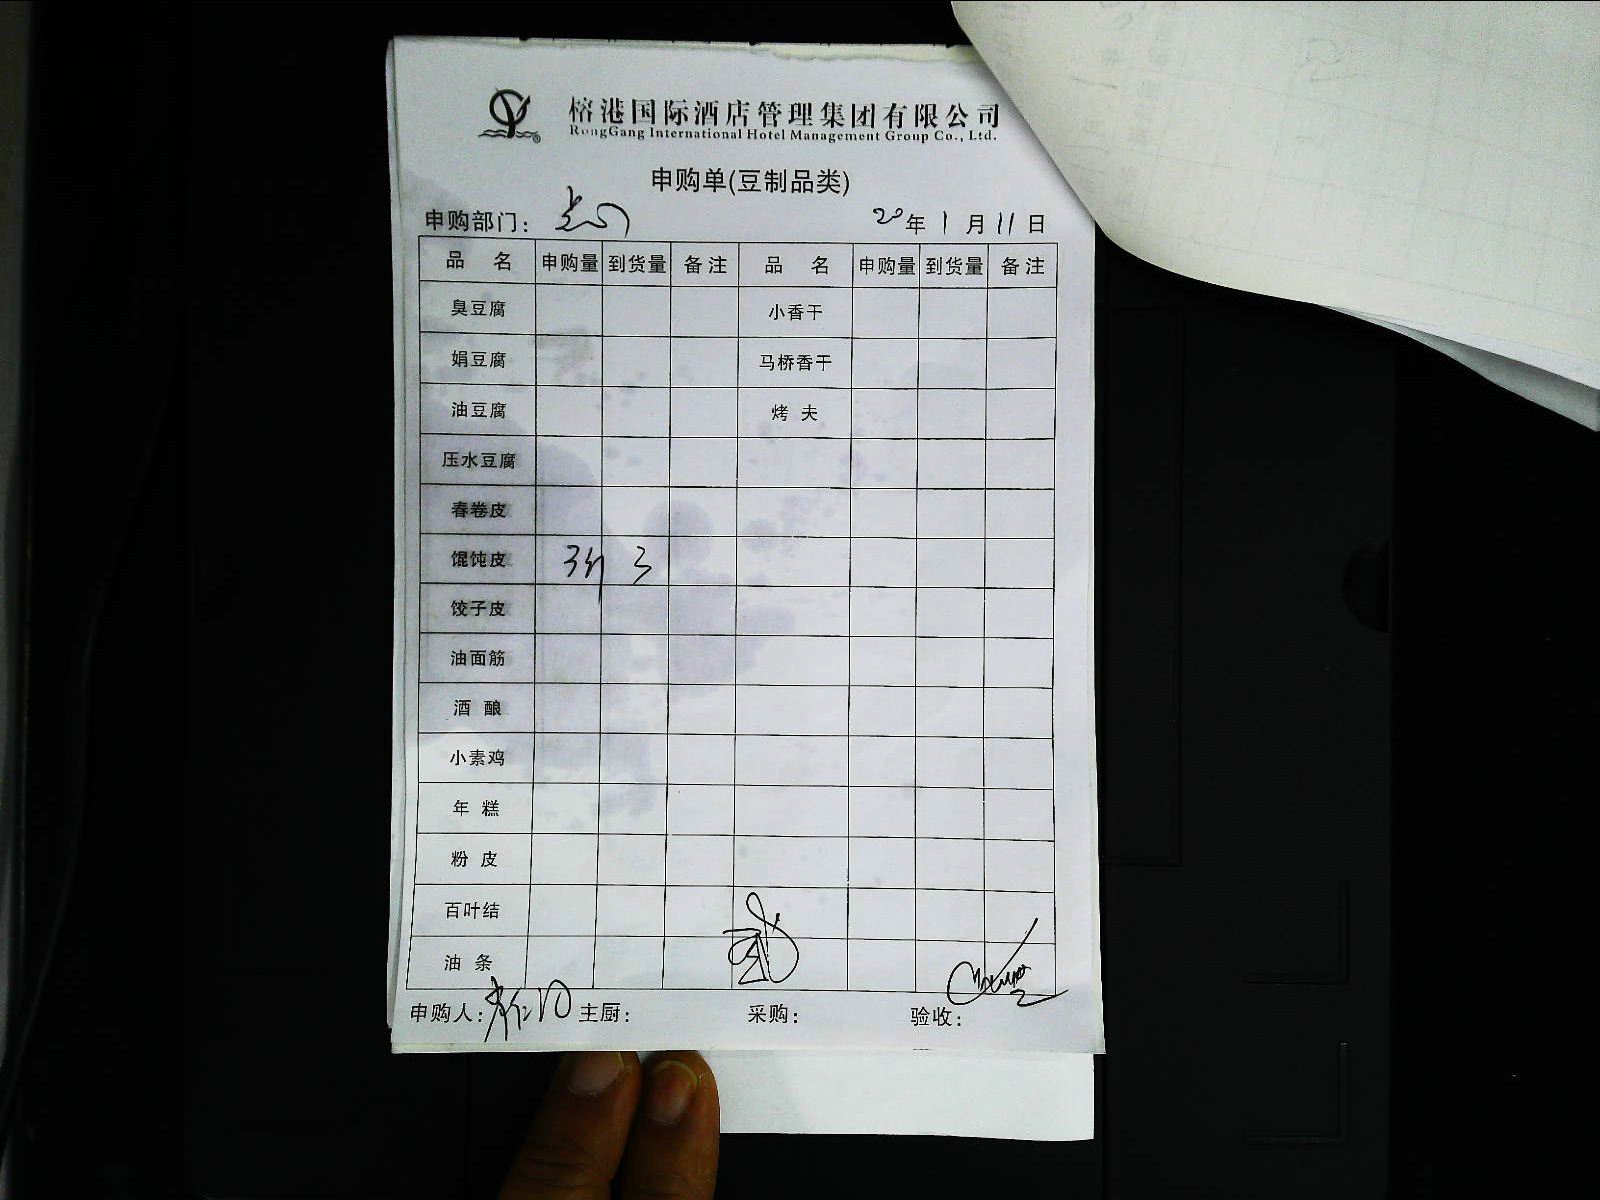 榕港国际酒店管理集团有限公司
RongGang International Hotel Management Group Co., Ltd.
申购单(豆制品类)
申购部门： 20年 1月 11日
品 名 申购量 到货量 备注 品 名 申购量 到货量 备注
臭豆腐 小香干
娟豆腐 马桥香干
油豆腐 烤 夫
压水豆腐
春卷皮
馄饨皮 3斤 3
饺子皮
油面筋
酒 酿
小素鸡
年 糕
粉 皮
百叶结
油 条
申购人： 主厨： 采购： 验收：